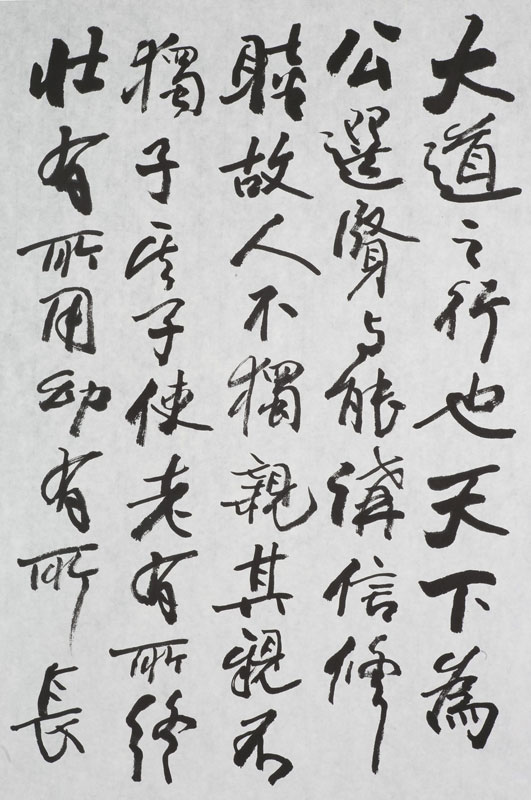 大道之行也天下為
公選賢与能講信修
睦故人不獨親其親不
獨子其子使老有所終
壯有所用幼有所長